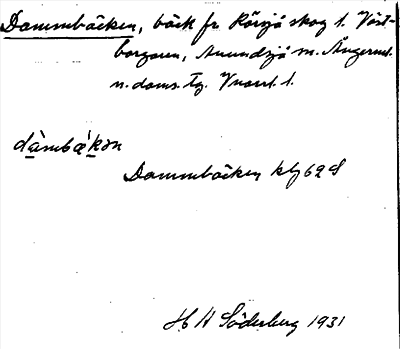 Dammbäcken, bäck fr. Rörsjö skog t. Väst-
borgaren, Anundsjö sn. Ångerml.
n. doms. Tg.
dàmbækən
Dammbäcken kbl 62 S
H H Söderberg 1931